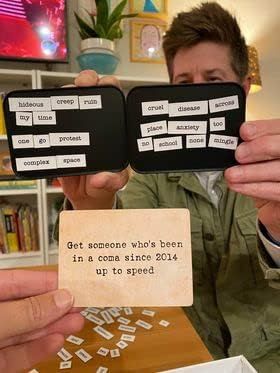 hideous creep ruin
my time
one go protest
complex space
cruel disease across
place anxiety too
no school none mingle
Get someone who's been
in a coma since 2014
up to speed